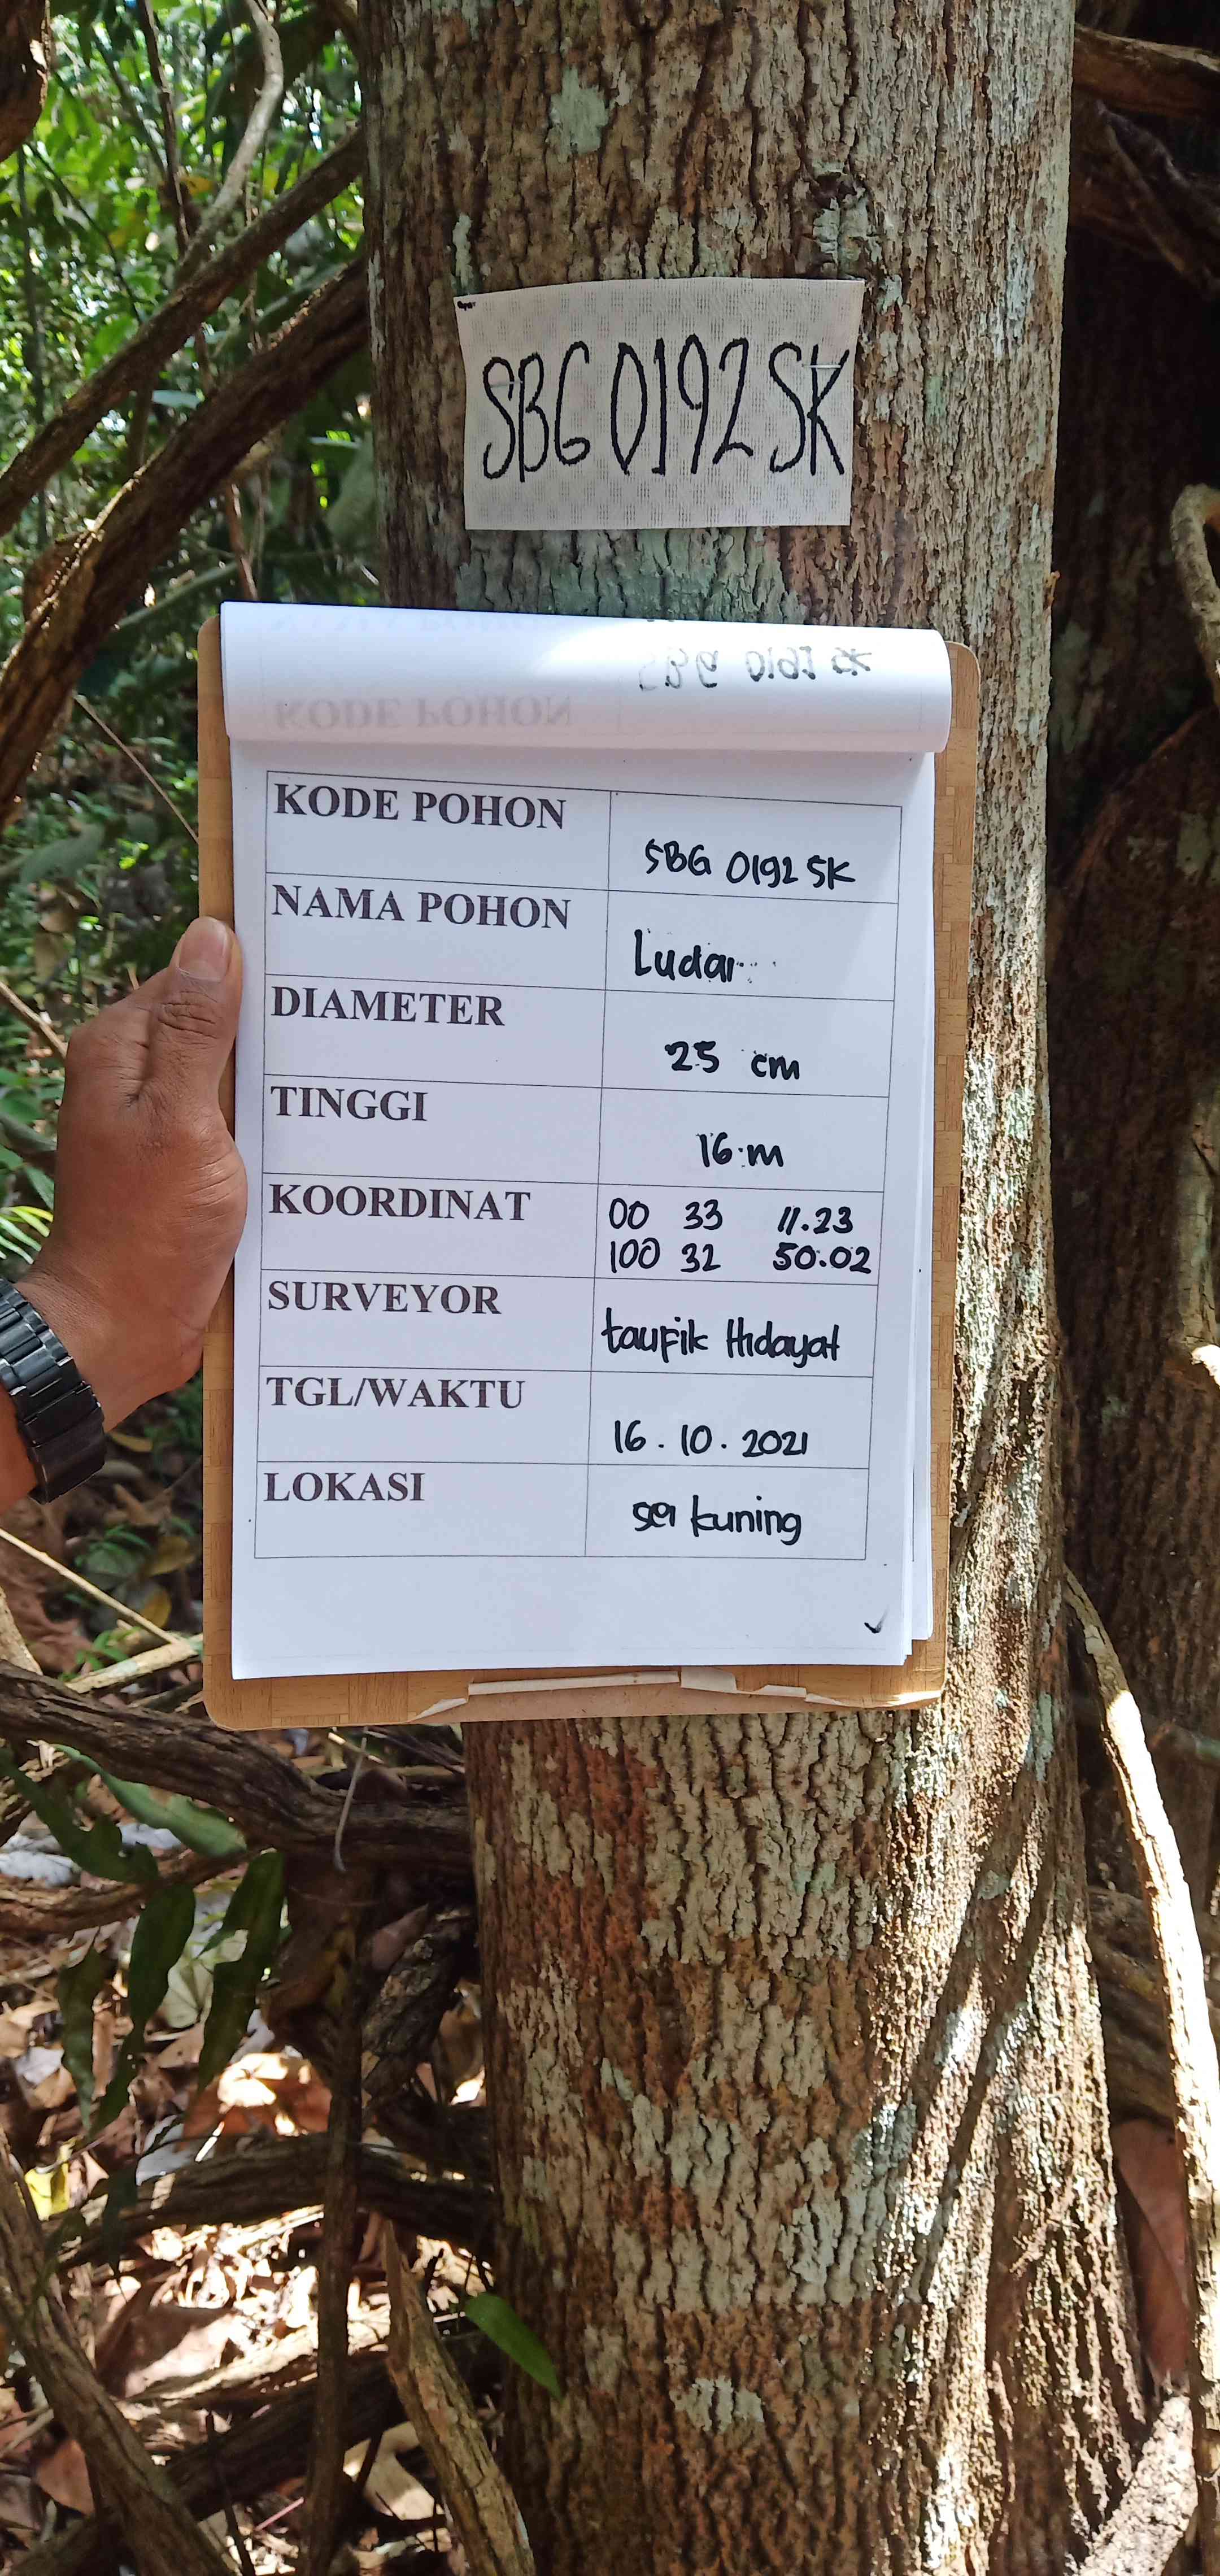 SBG 0192 SK
KODE POHON
SBG 0192 SK
NAMA POHON
Ludar
DIAMETER
25 cm
TINGGI
16 m
KOORDINAT
00 33 11.23
100 32 50.02
SURVEYOR
taufik Hidayat
TGL/WAKTU
16 . 10 . 2021
LOKASI
sei kuning